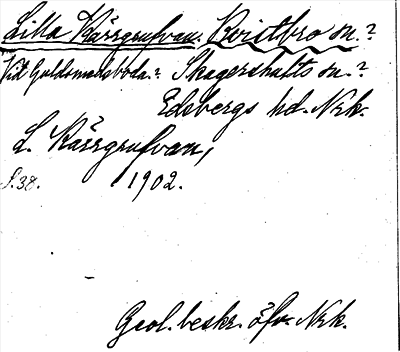 Lilla Kärrgrufvan. Kvistbro sn.?
Vid Guldsmedsboda.? Skagershults sn.?
Edsbergs hd. Nrk.
L. Kärrgrufvan,
S. 38. 1902.
Geol. beskr. öfv. Nrk.